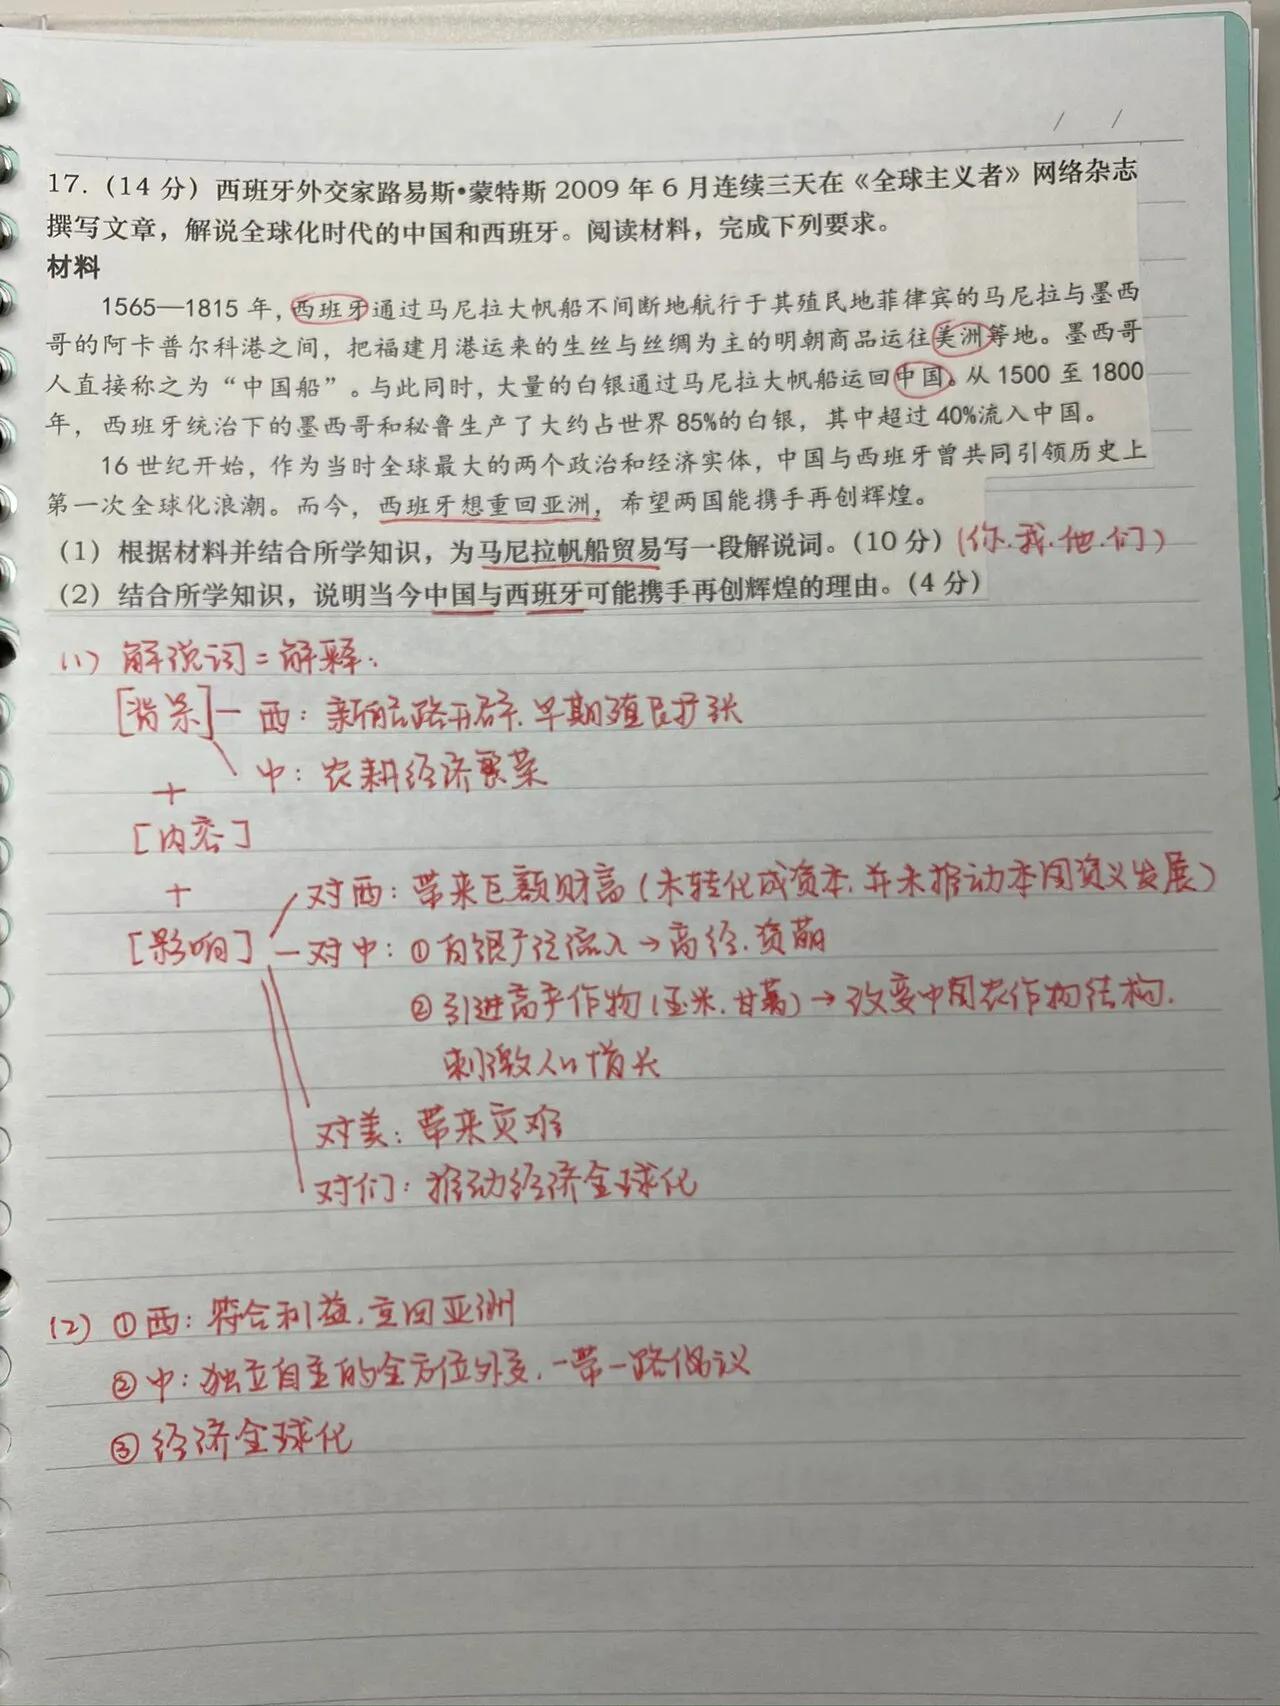 / /
17.（14 分）西班牙外交家路易斯•蒙特斯 2009 年 6 月连续三天在《全球主义者》网络杂志
撰写文章，解说全球化时代的中国和西班牙。阅读材料，完成下列要求。
材料
1565—1815 年，西班牙通过马尼拉大帆船不间断地航行于其殖民地菲律宾的马尼拉与墨西
哥的阿卡普尔科港之间，把福建月港运来的生丝与丝绸为主的明朝商品运往美洲等地。墨西哥
人直接称之为“中国船”。与此同时，大量的白银通过马尼拉大帆船运回中国。从 1500 至 1800
年，西班牙统治下的墨西哥和秘鲁生产了大约占世界 85%的白银，其中超过 40%流入中国。
16 世纪开始，作为当时全球最大的两个政治和经济实体，中国与西班牙曾共同引领历史上
第一次全球化浪潮。而今，西班牙想重回亚洲，希望两国能携手再创辉煌。
（1）根据材料并结合所学知识，为马尼拉帆船贸易写一段解说词。（10 分）（你.我.他.们）
（2）结合所学知识，说明当今中国与西班牙可能携手再创辉煌的理由。（4 分）
(1) 解说词=解释：
[背景]— 西：新航路开辟、早期殖民扩张
中：农耕经济繁荣
+
[内容]
+
对西：带来巨额财富（未转化成资本，并未推动本国资义发展）
[影响] — 对中：①白银广泛流入→商经.资萌
②引进高产作物（玉米.甘薯）→改变中国农作物结构.
刺激人口增长
对美：带来灾难
对们：推动经济全球化
(2) ①西：符合利益.重回亚洲
②中：独立自主的全方位外交.一带一路倡议
③经济全球化